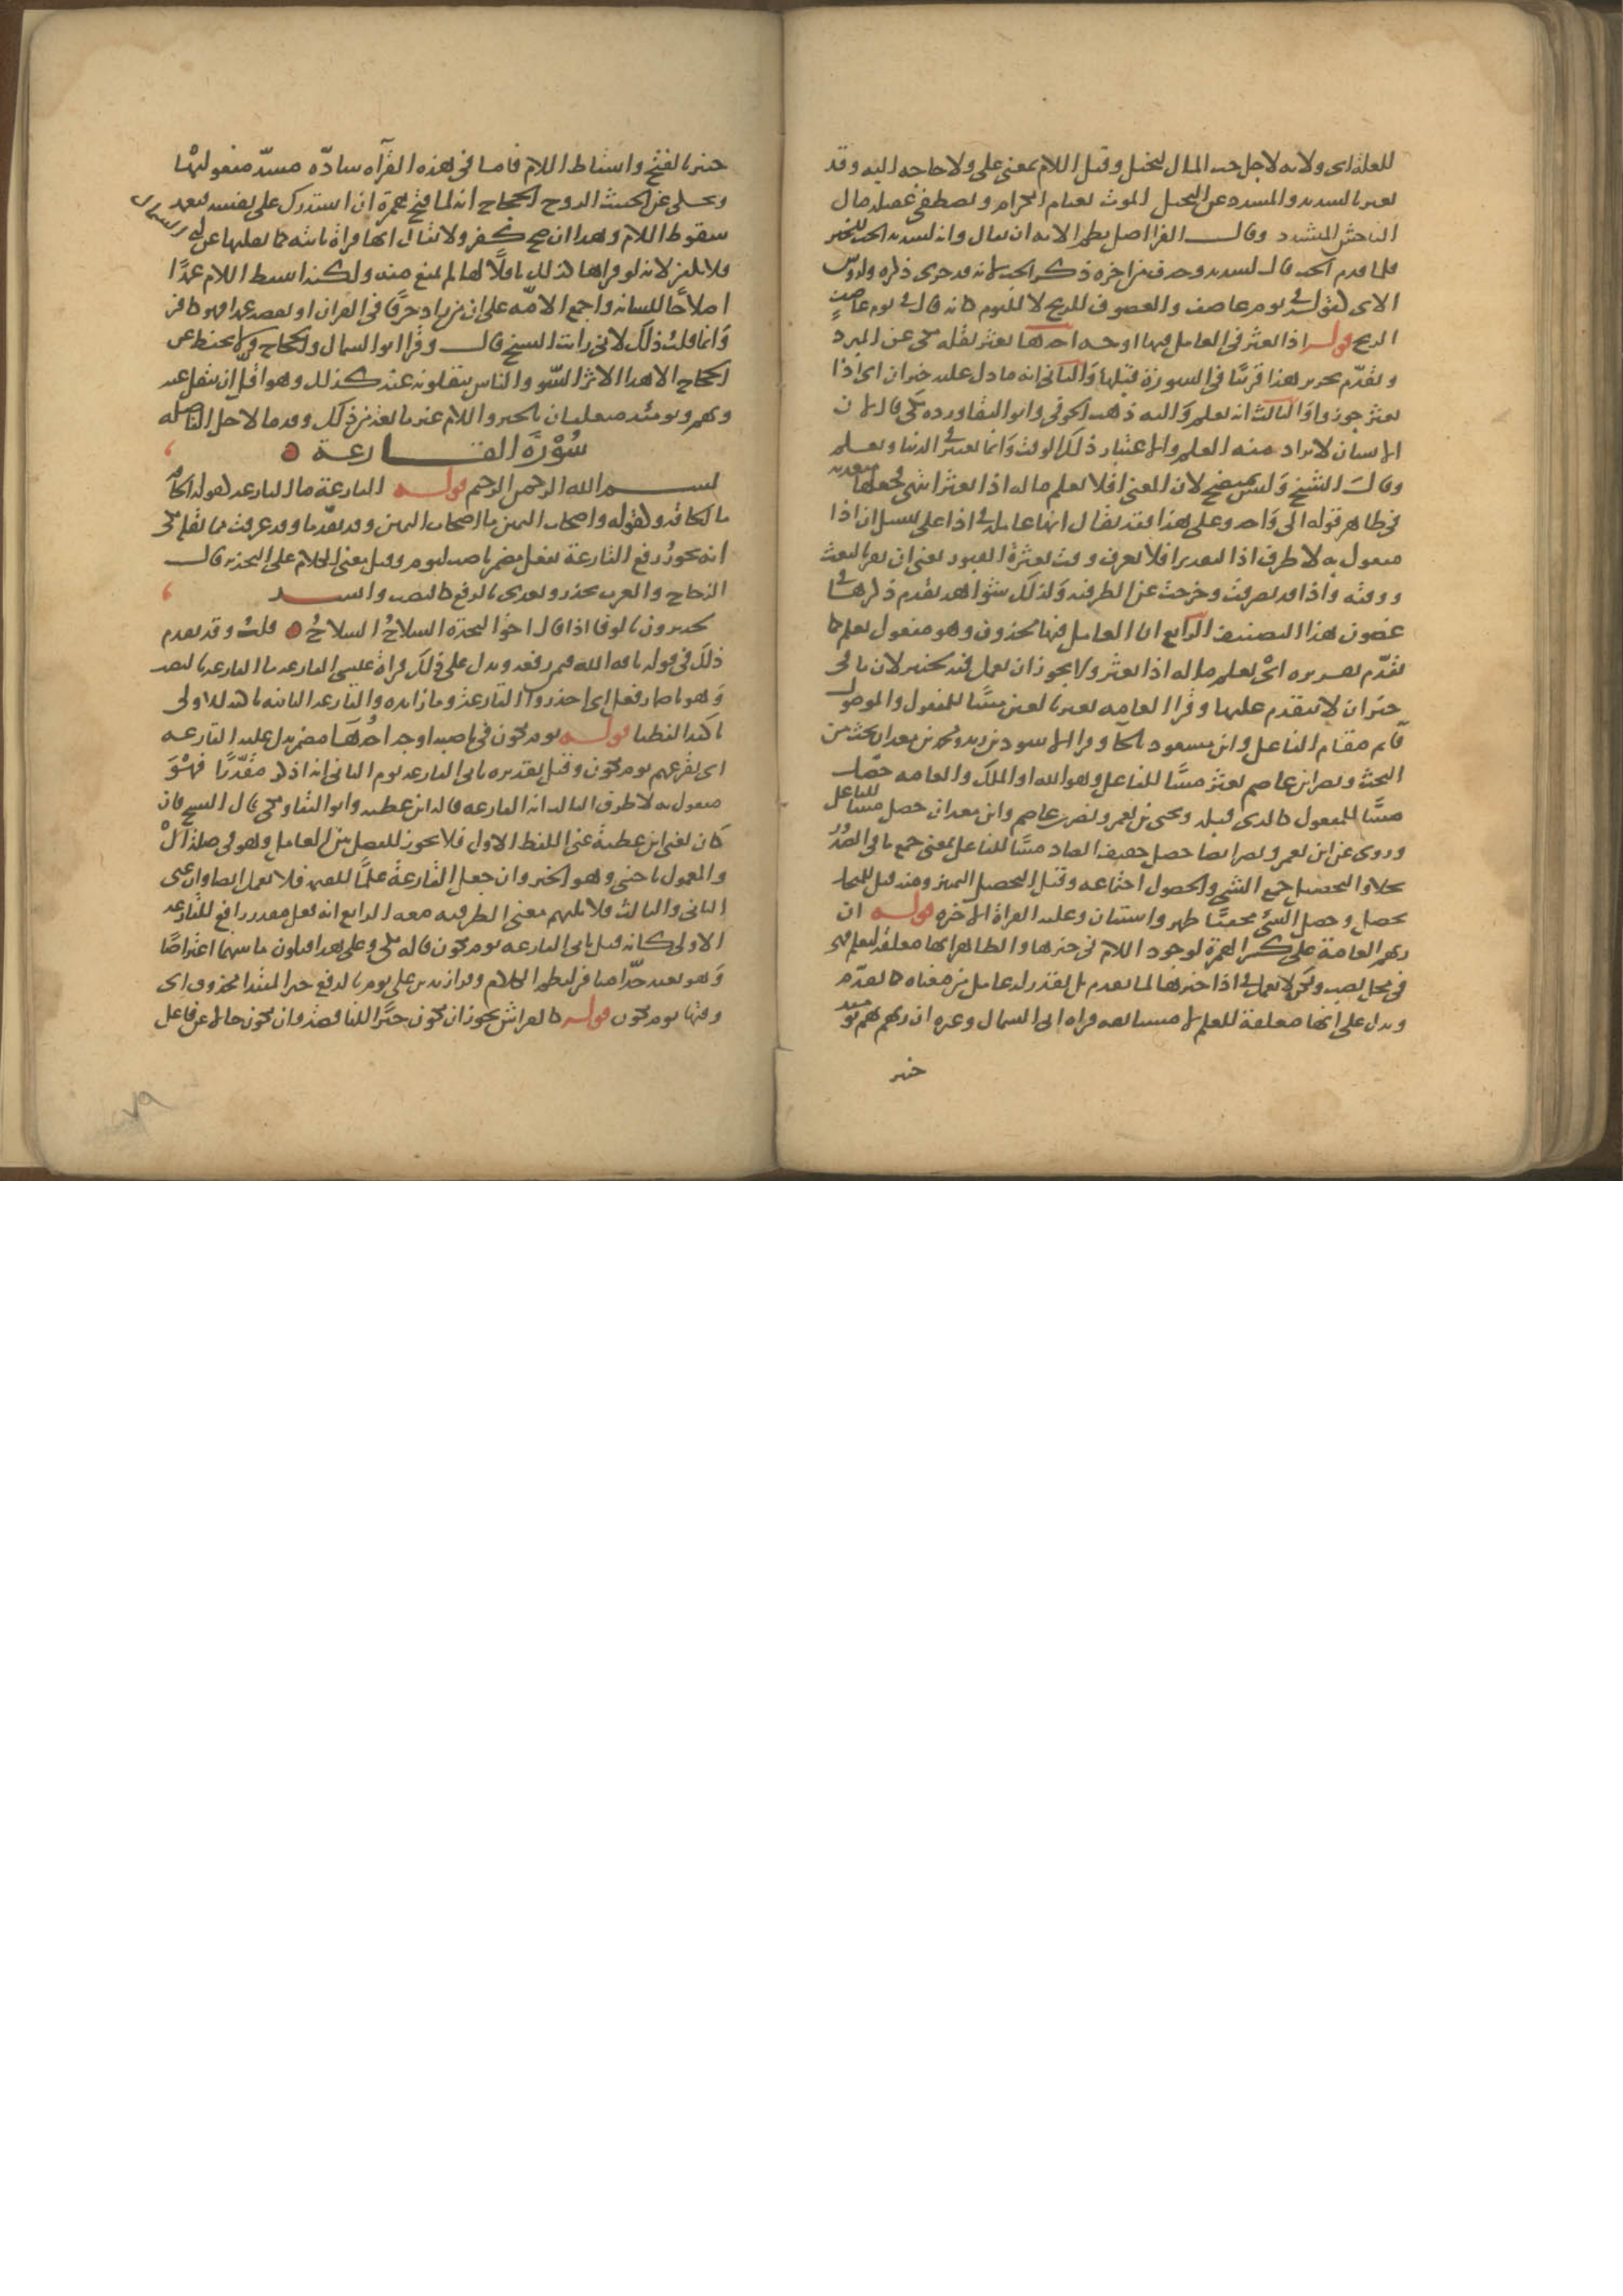 للعلة اى ولانه لاجل حب المال لبخيل وقيل اللام بمعنى على ولا حاجه اليه وقد
يعبر بالشديد والمتشدد عن البخيل الموت يعتام الكرام ويصطفى عقيلة مال
الفاحش المتشدد وقال الفرا اصل نظم الايه ان يقال وانه لشديد الحب للخير
فلما قدم الحب قال لشديد وحذف من اخره ذكر الحب لانه قد جرى ذكره ولروس
الاى كقوله في يوم عاصف والعصوف للريح لا لليوم كانه قال في يوم عاصف
الريح قوله اذا بعثر في العامل فيها اوجه احدها بعثر نقله مكى عن المبرد
وتقدم تحرير هذا قريبا في السورة قبلها والثاني انه ما دل عليه خبر ان اى اذا
بعثر جوزوا والثالث انه يعلم واليه ذهب الحوفى وابو البقا ورده مكى قال لان
الانسان لا يراد منه العلم والاعتبار ذلك الوقت وانما يعتبر في الدنيا ويعلم
وقال الشيخ وليس بمتضح لان المعنى افلا يعلم ماله اذا بعثر انتهى فجعلها متعديه
في ظاهر قوله الى واحد وعلى هذا فقد يقال انها عامله في اذا على سبيل ان اذا
مفعول به لا ظرف اذا التقدير افلا يعرف وقت بعثرة القبور يعنى ان يقر بالبعث
ووقته واذا قد تصرفت وخرجت عن الظرفيه ولذلك شواهد تقدم ذكرها في
غضون هذا التصنيف الرابع ان العامل فيها محذوف وهو مفعول يعلم كما
تقدم تقريره اى يعلم ماله اذا بعثر ولا يجوز ان يعمل فيه لخبير لان ما في
خبر ان لا يتقدم عليها وقرا العامه بعثر بالعين مبنيا للمفعول والموصول
قايم مقام الفاعل وابن مسعود بالحا وقرا الاسود بن زيد ومحمد بن معدان بحث من
البحث ونصر ابن عاصم بعثر مبنيا للفاعل وهو الله او الملك والعامه حصل
مبنيا للمفعول كالذى قبله ويحيى بن يعمر ونصر بن عاصم وابن معدان حصل مبنيا للفاعل
وروى عن ابن يعمر ونصر ايضا حصل خفيف الصاد مبنيا للفاعل بمعنى جمع ما في الصدور
محلا والتحصيل جمع الشى والحصول اجتماعه وقيل التحصيل التمييز ومنه قيل للمنخل
محصل وحصل الشئ مخففا ظهر واستبان وعليه القراة الاخره قوله ان
ربهم العامة على كسر الهمزة لوجود اللام في خبرها والظاهر انها معلقه ليعلم فهى
في محل نصب ولكن لا يعمل في اذا خبرها لما تقدم بل يقدر له عامل من معناه كما تقدم
ويدل على انها معلقة للعلم لا مستانفه قراه ابى السمال وغيره ان ربهم بهم يوميذ
خبير
خبير بالفتح واسقاط اللام فانها في هذه القرآه سادّه مسدّ مفعوليها
ويحكى عن الخبيث الروح الحجاج انه لما فتح همزة ان استدرك على نفسه فتعمد
سقوط اللام وهذا ان صح كفر ولا يقال انها قراة ثابته كما نقلها عن ابى السمال
فلا يكفر لانه لو قراها كذلك ناقلًا لها لم يمنع منه ولكنه اسقط اللام عمدًا
اصلاحًا للسانه واجمع الامّه على ان من زاد حرفًا في القران او نقصه عمدا فهو كافر
وانما قلت ذلك لانى رايت الشيخ قال وقرا ابو السمال والحجاج ولا يحفظ عن
الحجاج الا هذا الاثر السوء والناس ينقلونه عنه كذلك وهو اقل ان ينقل عنه
وبهم ويومئذ متعلقان بالخبر واللام غير مانعة من ذلك وقدما لاجل الفاصله
سُوْرَة القارعة
بسم الله الرحمن الرحيم قوله القارعة ما القارعه كقوله الحاقه
ما الحاقه وكقوله واصحاب اليمين ما اصحاب اليمين وقد تقدما وقد عرفت مما نقله مكى
انه يجوز رفع القارعة بفعل مضمر ناصب ليوم وقيل معنى الكلام على التحذير قال
الزجاج والعرب تحذر وتغرى بالرفع كالنصب وانشد
لجديرون بالوفا اذا قال اخو النجدة السلاحُ السلاحُ قلت وقد تقدم
ذلك في قوله ناقه الله فيمن رفعه ويدل على ذلك قراة عيسى القارعه ما القارعه بالنصب
وهو باضمار فعل اى احذروا القارعة وما زايده والقارعه الثانيه تاكيد للاولى
تاكيدا لفظيا قوله يوم يكون في ناصبه اوجه احدها مضمر يدل عليه القارعه
اى تقرعهم يوم يكون وقيل تقديره تاتى القارعه يوم الثانى انه اذكر مقدّرًا فهو
مفعول به لا ظرف الثالث انه القارعه قاله ابن عطيه وابو البقا ومكى قال الشيخ فان
كان يعنى ابن عطية عنى اللفظ الاول فلا يجوز للفصل بين العامل وهو في صلة الْ
والمعمول باجنبى وهو الخبر وان جعل القارعة علمًا للقيمة فلا يعمل ايضا وان عنى
الثانى والثالث فلا يلتيم معنى الظرفيه معه الرابع انه فعل مقدر رافع للقارعه
الاولى كانه قيل تاتى القارعه يوم يكون قاله مكى وعلى هذا فيكون ما بينهما اعتراضًا
وهو بعيد جدّا منافر لنظم الكلام وقرا زيد بن على يوم بالرفع خبر المبتدا محذوف اى
وقتها يوم يكون قوله كالفراش يجوز ان يكون خبرًا للناقصة وان يكون حالا من فاعل